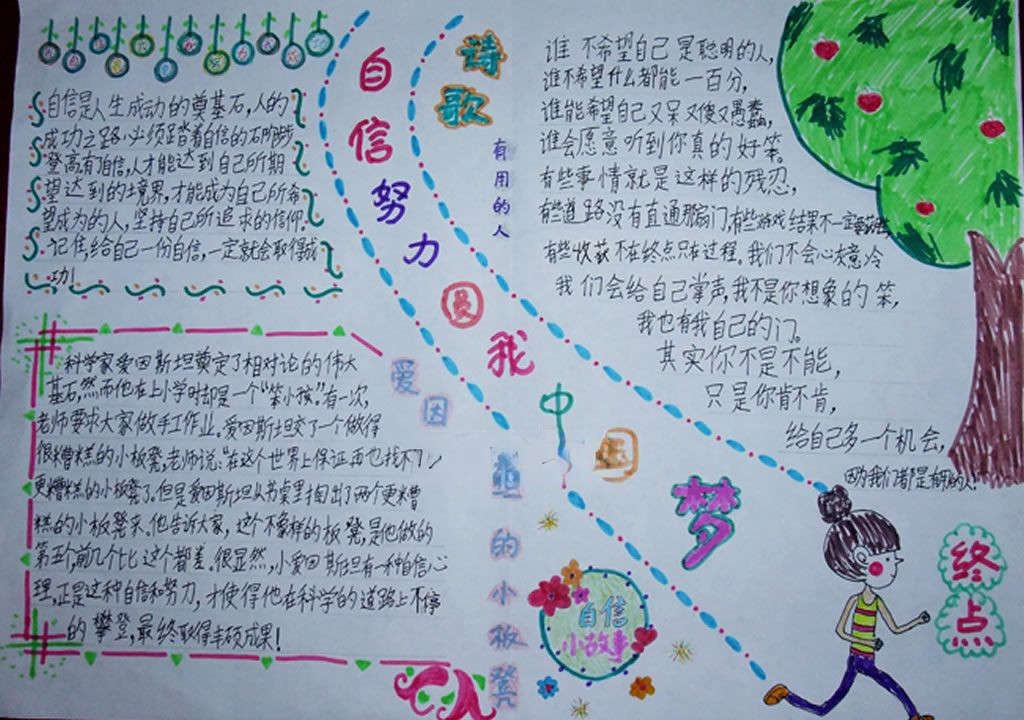 自信是人生成功的奠基石,人的
成功之路必须踏着自信的石阶步步
登高有了自信,人才能达到自己所期
望达到的境界,才能成为自己所希
望成为的人,坚持自己所追求的信仰。
记住,给自己一份自信,一定就会取得成
功!
自信努力圆我中国梦
诗歌
有用的人
谁不希望自己是聪明的人,
谁不希望什么都能一百分,
谁能希望自己又呆又傻又愚蠢,
谁会愿意听到你真的好笨。
有些事情就是这样的残忍,
有些道路没有直通那扇门,有些游戏结果不一定
有些收获不在终点只在过程。我们不会心灰意冷
我们会给自己掌声,我不是你想象的笨,
我也有我自己的门。
其实你不是不能,
只是你肯不肯,
给自己多一个机会,
因为我们都是有用的人!
爱因斯坦的小板凳
科学家爱因斯坦奠定了相对论的伟大
基石,然而他在上小学时却是一个“笨小孩”。有一次,
老师要求大家做手工作业。爱因斯坦交了一个做得
很糟糕的小板凳,老师说:“在这个世界上保证再也找不
更糟糕的小板凳了。但是爱因斯坦从书桌里掏出了两个更糟
糕的小板凳来。他告诉大家,这个不像样的板凳,是他做的
第五个,前几个比这个都差。很显然,小爱因斯坦有一种自信心
理,正是这种自信和努力,才使得他在科学的道路上不停
的攀登,最终取得丰硕成果!
自信
小故事
终点